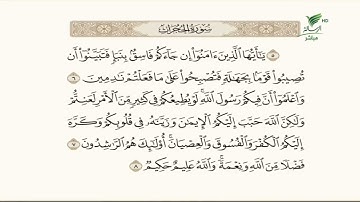 سُورَةُ الحُجُرَاتِ
HD
الرسالة
مباشر
٥ يَٰٓأَيُّهَا ٱلَّذِينَ ءَامَنُوٓا۟ إِن جَآءَكُمْ فَاسِقٌۢ بِنَبَإٍ فَتَبَيَّنُوٓا۟ أَن
تُصِيبُوا۟ قَوْمًۢا بِجَهَٰلَةٍ فَتُصْبِحُوا۟ عَلَىٰ مَا فَعَلْتُمْ نَٰدِمِينَ ٦
وَٱعْلَمُوٓا۟ أَنَّ فِيكُمْ رَسُولَ ٱللَّهِ ۚ لَوْ يُطِيعُكُمْ فِى كَثِيرٍ مِّنَ ٱلْأَمْرِ لَعَنِتُّمْ
وَلَٰكِنَّ ٱللَّهَ حَبَّبَ إِلَيْكُمُ ٱلْإِيمَٰنَ وَزَيَّنَهُۥ فِى قُلُوبِكُمْ وَكَرَّهَ
إِلَيْكُمُ ٱلْكُفْرَ وَٱلْفُسُوقَ وَٱلْعِصْيَانَ ۚ أُو۟لَٰٓئِكَ هُمُ ٱلرَّٰشِدُونَ ٧
فَضْلًا مِّنَ ٱللَّهِ وَنِعْمَةً ۚ وَٱللَّهُ عَلِيمٌ حَكِيمٌ ٨